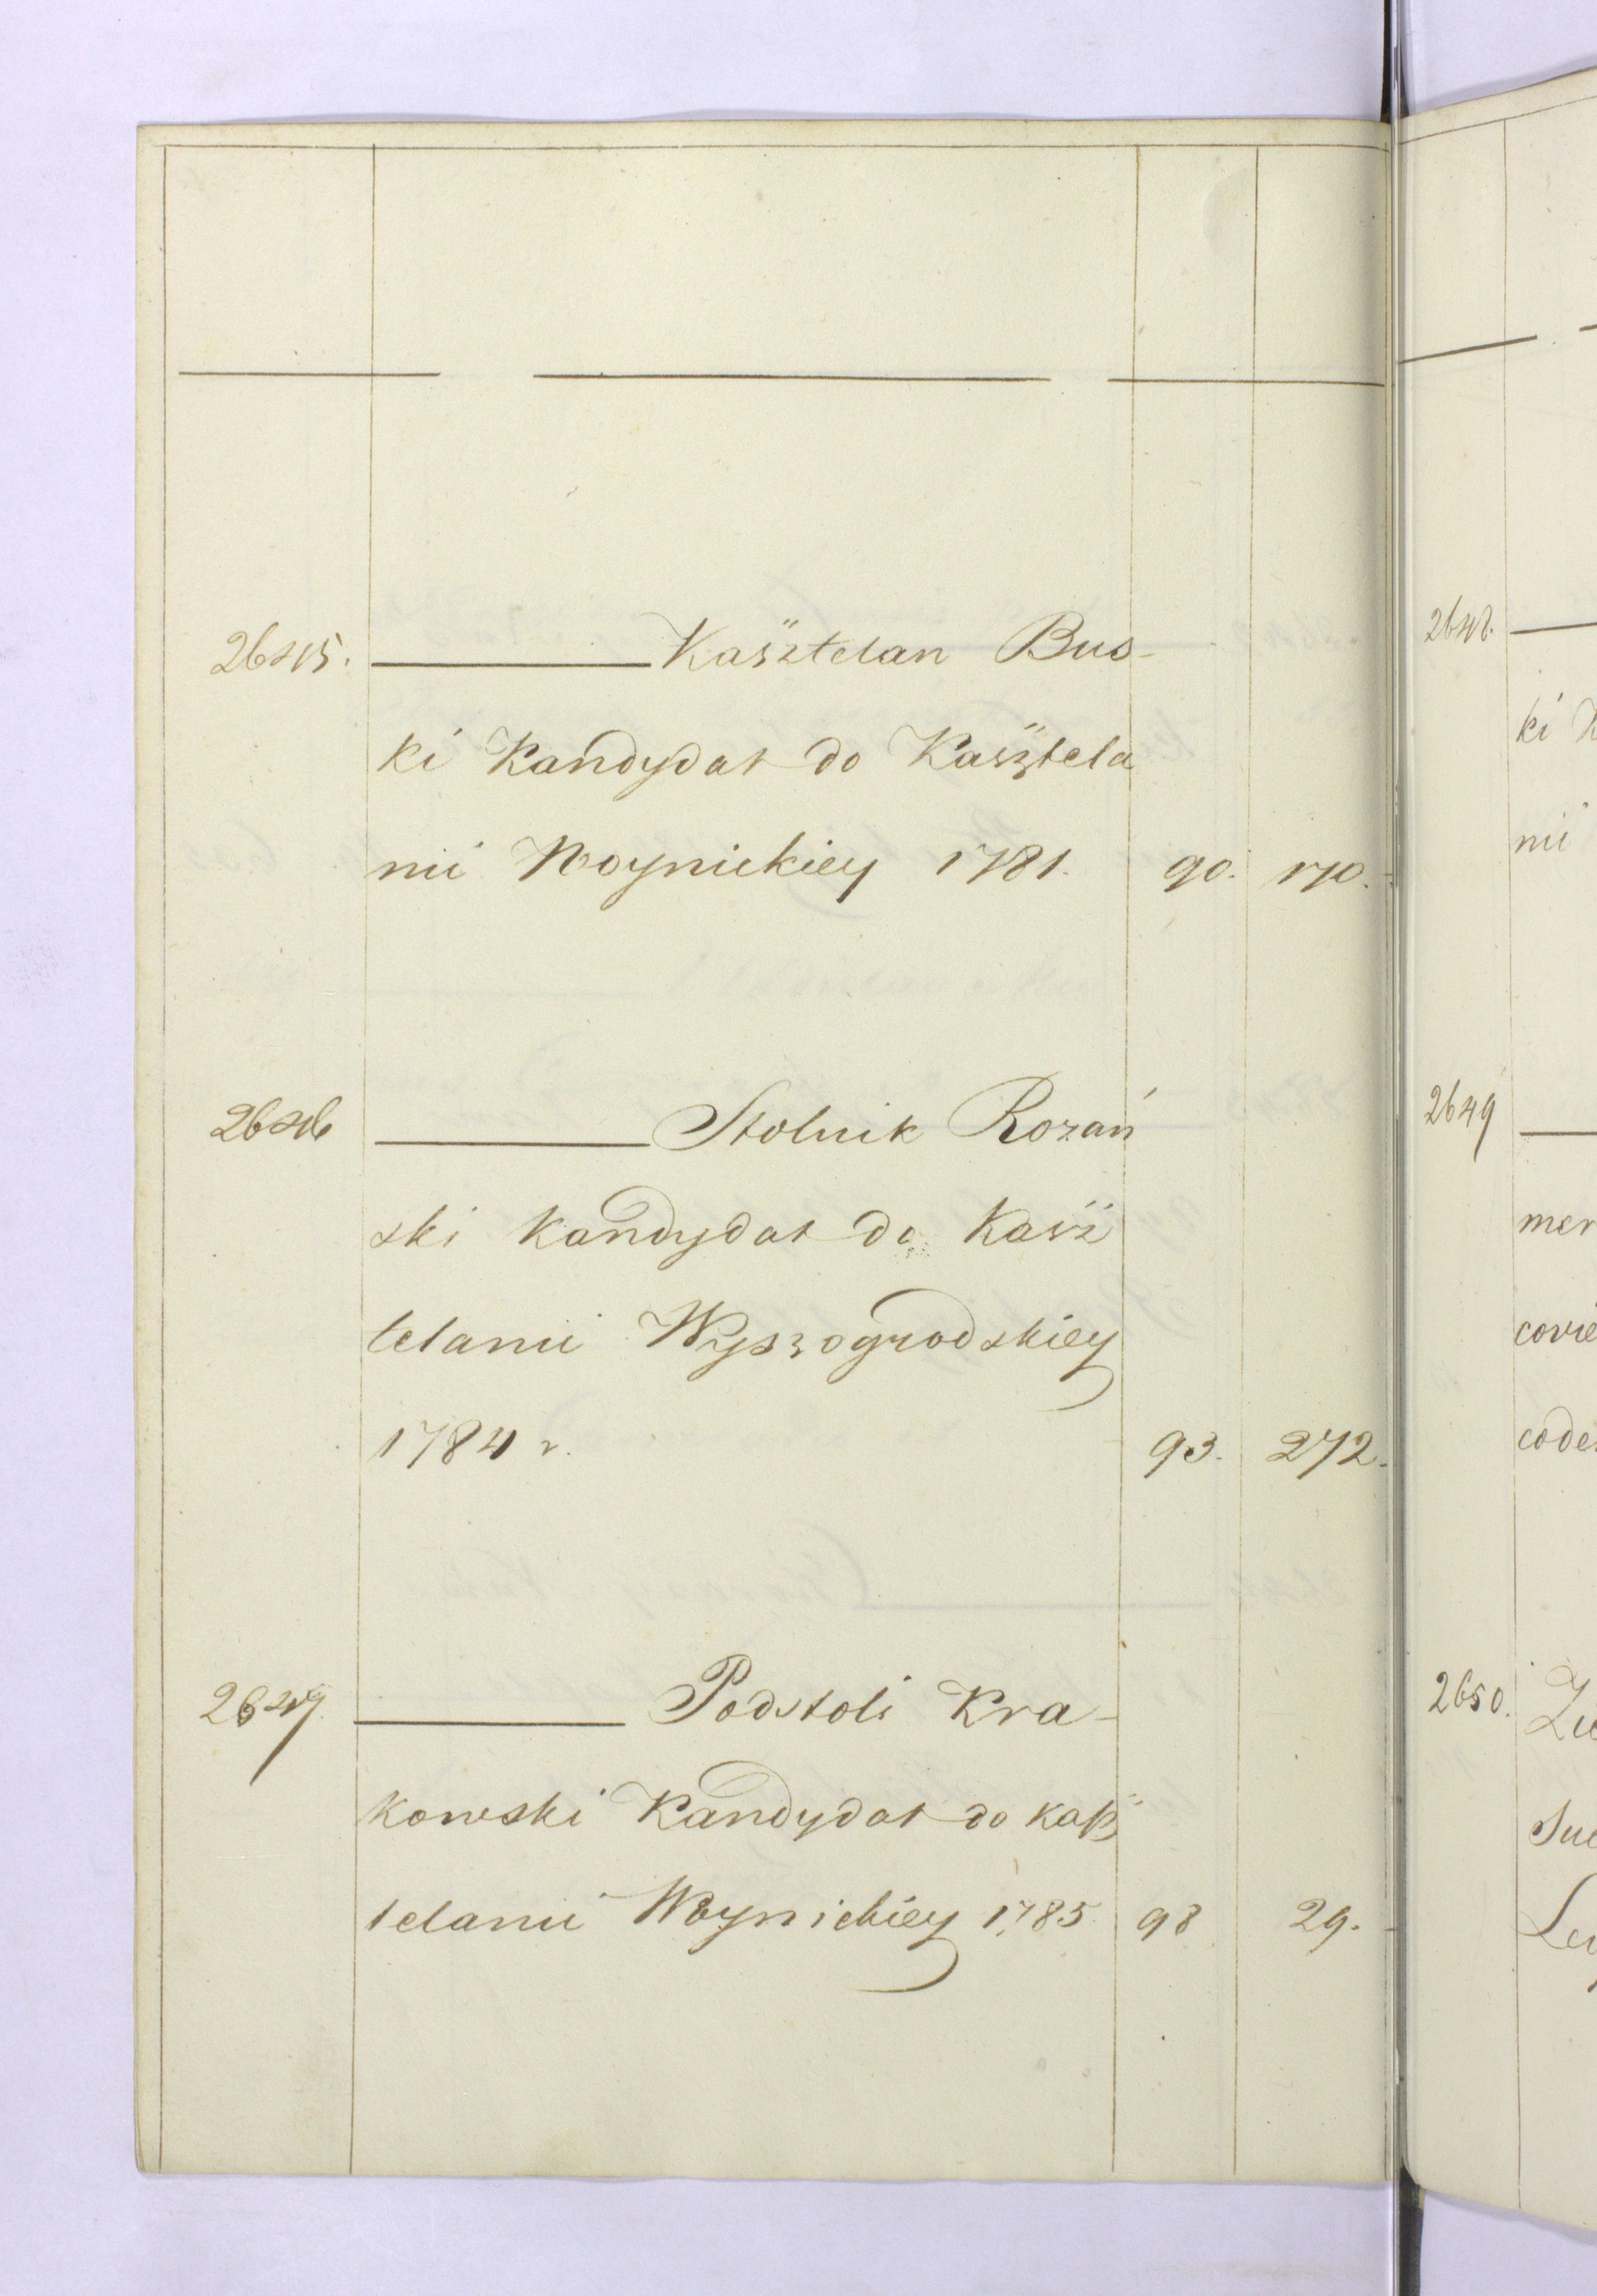 2645. ——— Kasztelan Bus-
ki Kandydat do Kasztela
nii Woynickiey 1781. 90. 170.
2646 ——— Stolnik Rozań
ski kandydat do Kasz
telanii Wyszogrodskiey
1784 r. 93. 272.
2647 ——— Podstoli Kra-
kowski Kandydat do kasz
telanii Woynickiey 1785. 98 29.
2648.
ki K
nii
2649
mer
corie
code
2650.
Suc